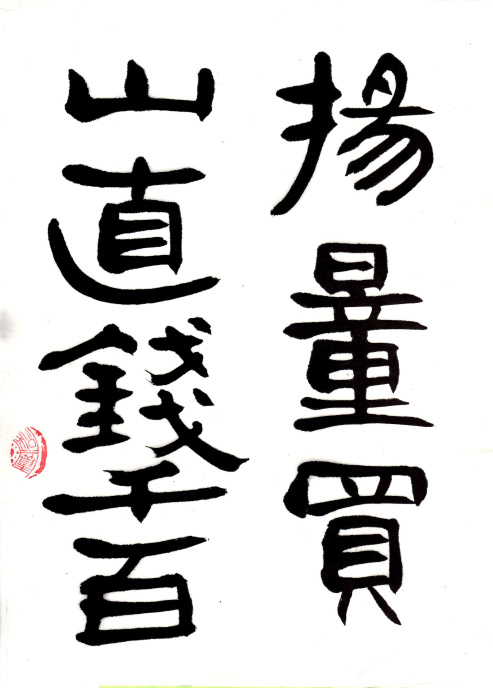 揚量買
山直錢千百